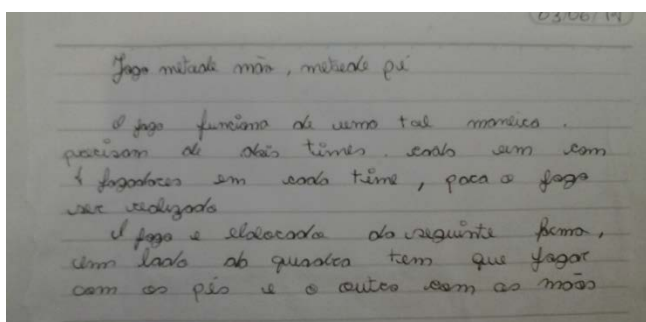 03/06/19
Jogo metade mão, metade pé
O jogo funciona de uma tal maneira.
precisam de dois times. cada um com
jogadores em cada time, para o jogo
ser realizado
O jogo e elaborado da seguinte forma,
um lado da quadra tem que jogar
com os pés e o outro com as mãos